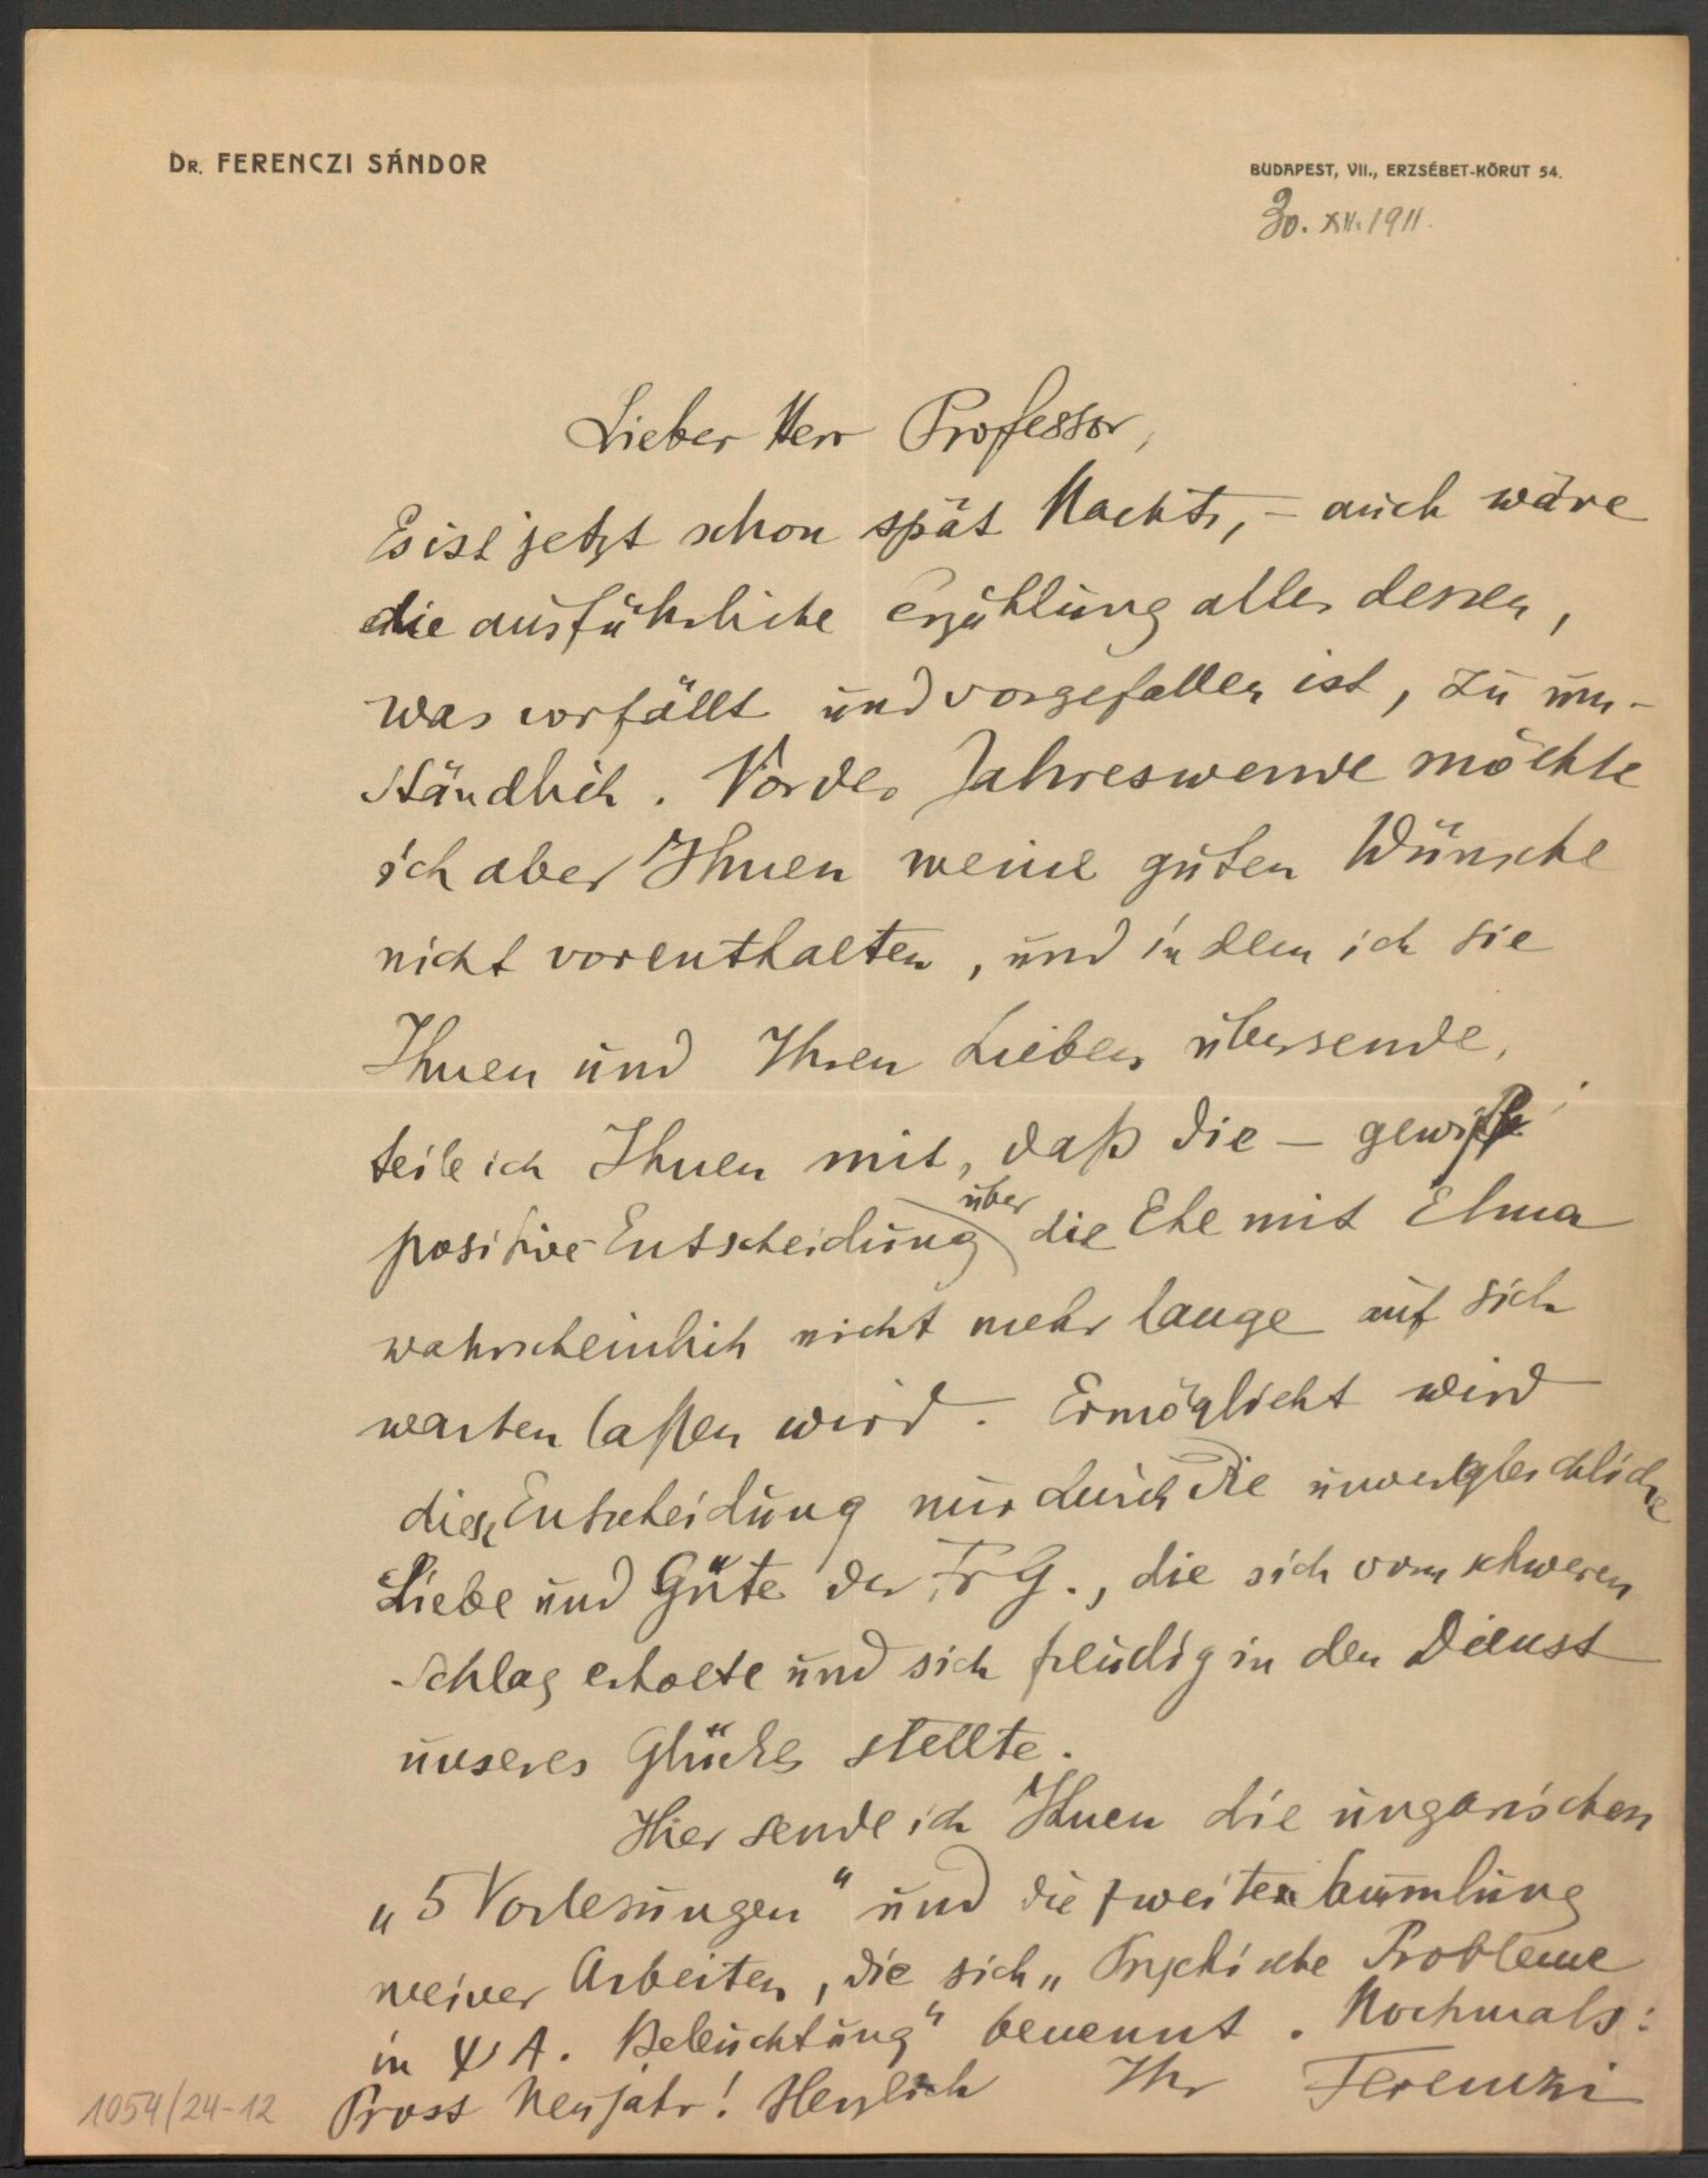 DR. FERENCZI SÁNDOR
BUDAPEST, VII., ERZSÉBET-KÖRUT 54.
30. XII. 1911.
Lieber Herr Professor,
Es ist jetzt schon spät Nachts, – auch wäre
die ausführliche Erzählung alles dessen,
was vorfällt und vorgefallen ist, zu um-
ständlich. Vor der Jahreswende möchte
ich aber Ihnen meine guten Wünsche
nicht vorenthalten, und indem ich sie
Ihnen und Ihren Lieben übersende,
teile ich Ihnen mit, daß die – gewiß
positive – Entscheidung über die Ehe mit Elma
wahrscheinlich nicht mehr lange auf sich
warten laßen wird. Ermöglicht wird
diese Entscheidung nur durch die unvergleichliche
Liebe und Güte der Fr G., die sich vom schweren
Schlag erholte und sich freudig in den Dienst
unseres Glückes stellte.
Hier sende ich Ihnen die ungarischen
„5 Vorlesungen“ und die zweite Sammlung
meiner Arbeiten, die sich „Psychische Probleme
in ΨA. Beleuchtung“ benennt. Nochmals:
Prost Neujahr! Herzlich Ihr Ferenczi
1054/24-12